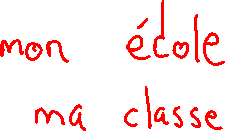 mon école
ma classe